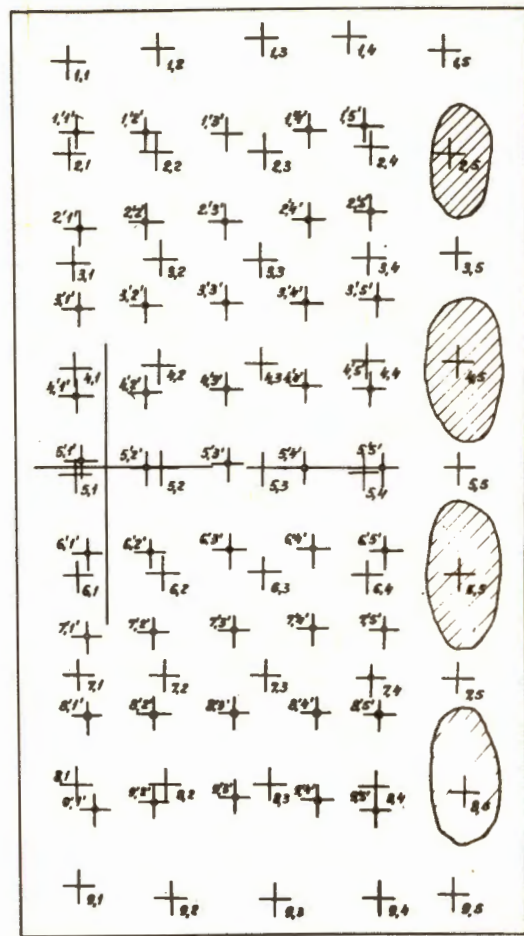 1,1 1,2 1,3 1,4 1,5
1,'1' 1,'2' 1,'3' 1,'4' 1,'5'
2,1 2,2 2,3 2,4 2,5
2,'1' 2,'2' 2,'3' 2,'4' 2,'5'
3,1 3,2 3,3 3,4 3,5
3,'1' 3,'2' 3,'3' 3,'4' 3,'5'
4,1 4,2 4,3 4,4 4,5
4,'1' 4,'2' 4,'3' 4,'4' 4,'5'
5,'1' 5,'2' 5,'3' 5,'4' 5,'5'
5,1 5,2 5,3 5,4 5,5
6,'1' 6,'2' 6,'3' 6,'4' 6,'5'
6,1 6,2 6,3 6,4 6,5
7,'1' 7,'2' 7,'3' 7,'4' 7,'5'
7,1 7,2 7,3 7,4 7,5
8,'1' 8,'2' 8,'3' 8,'4' 8,'5'
8,1 8,2 8,3 8,4
9,'1' 9,'2' 9,'3' 9,'4' 9,'5'
9,1 9,2 9,3 9,4 9,5